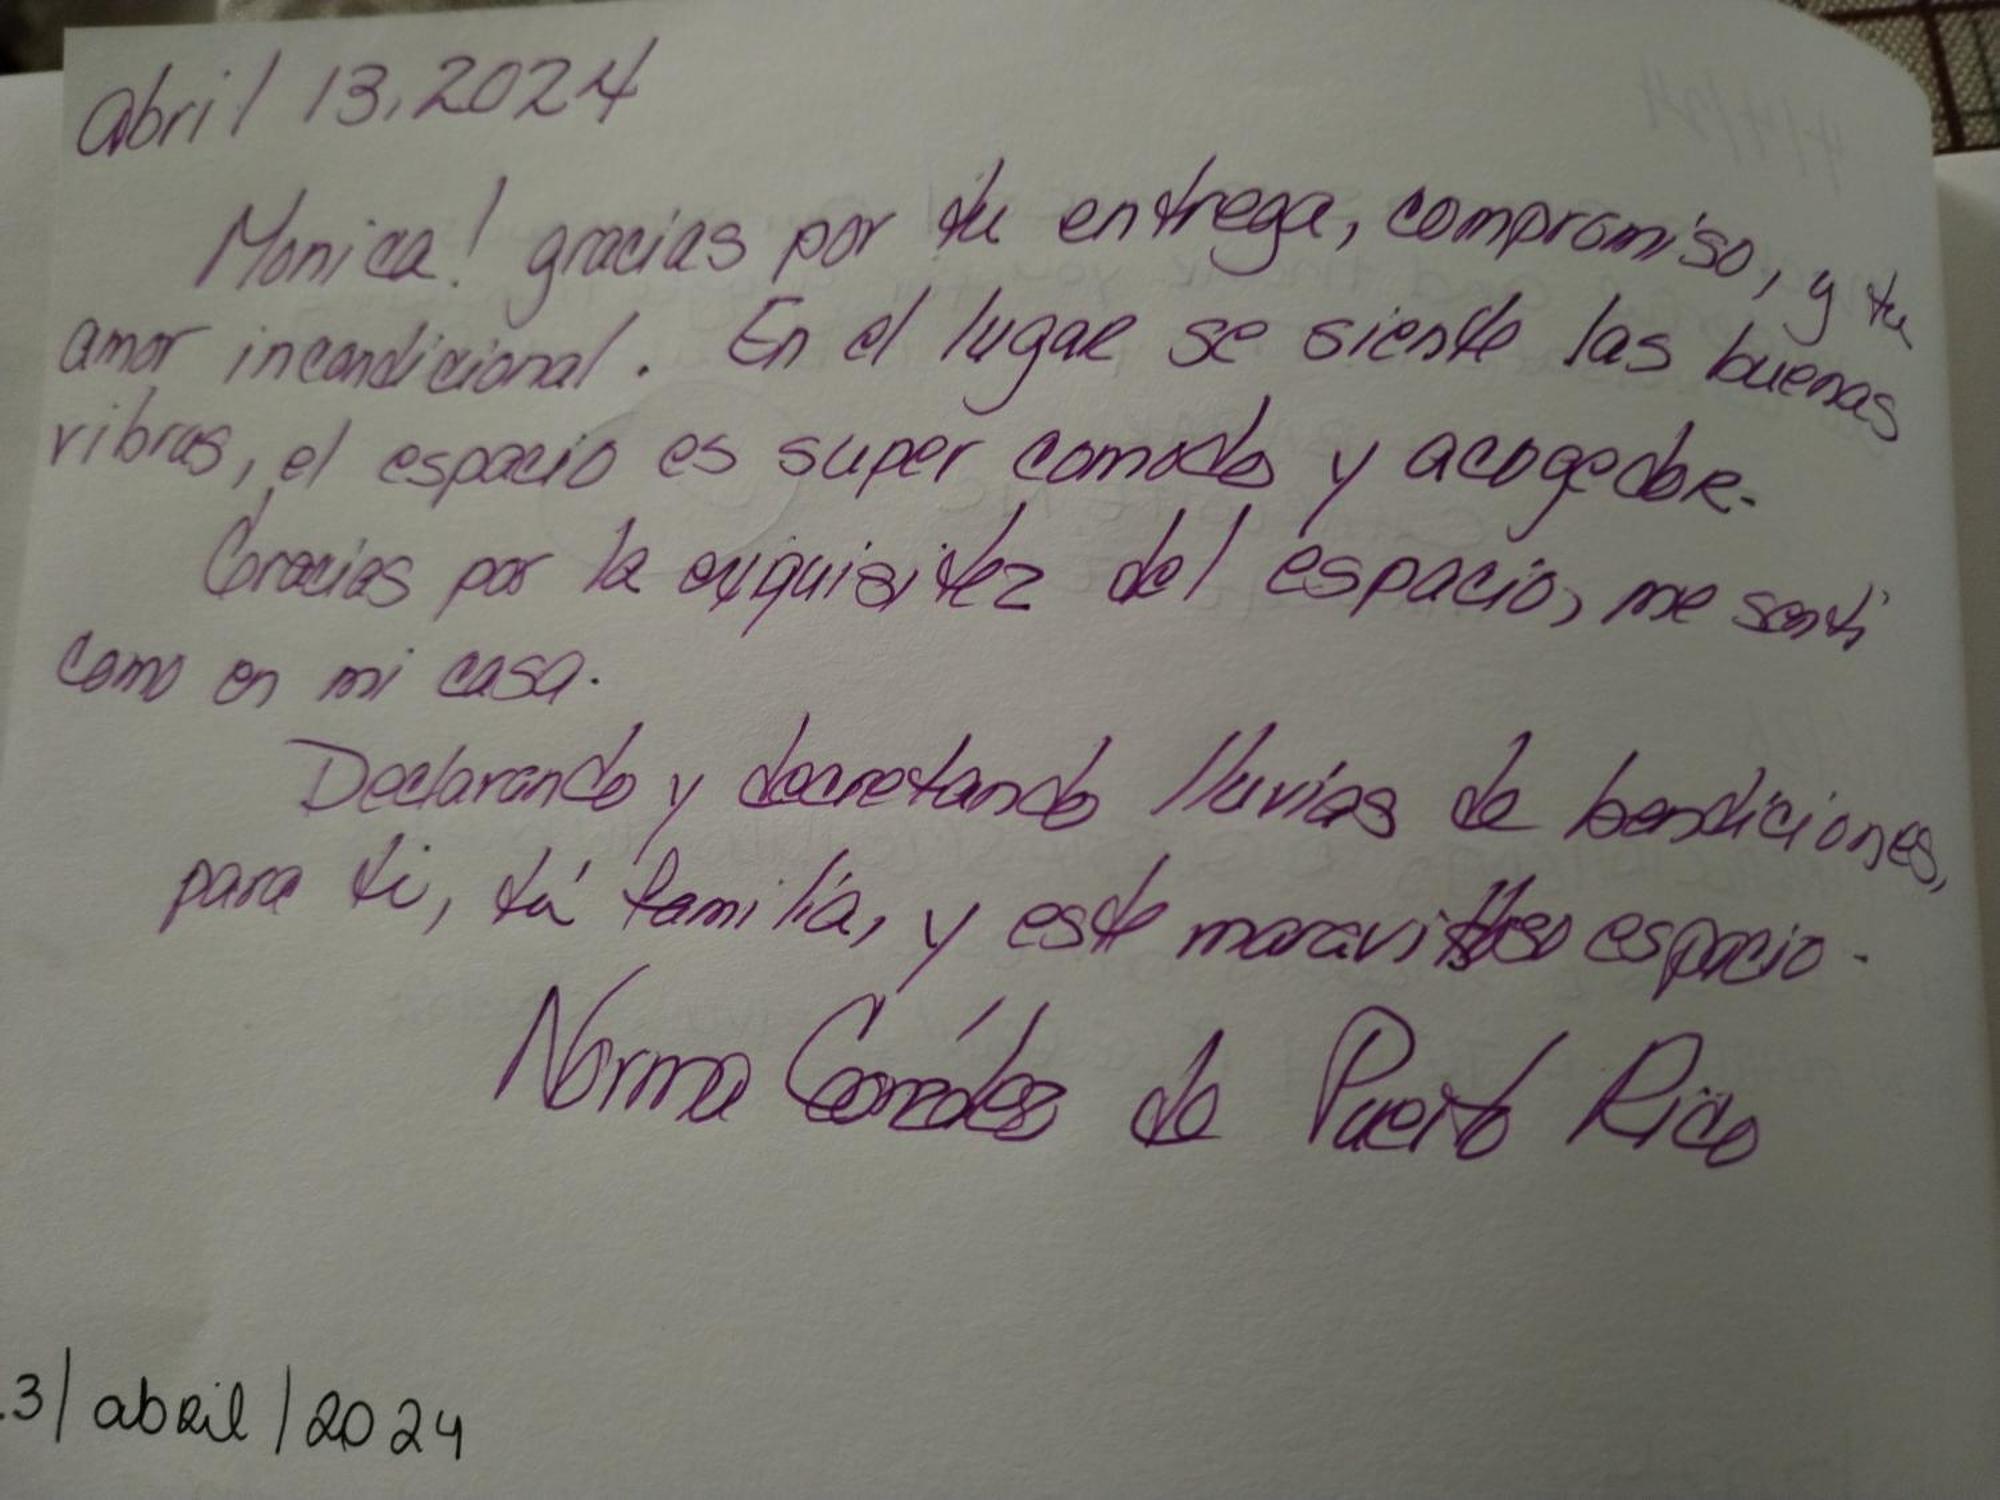 Abril 13, 2024
Monica! gracias por tu entrega, compromiso, y tu
amor incondicional. En el lugar se siente las buenas
vibras, el espacio es super comodo y acogedor.
Gracias por la exquisitez del espacio, me sentí
como en mi casa.
Declarando y decretando lluvias de bendiciones,
para ti, tú familia, y este maravilloso espacio.
Norma de Puerto Rico
.3/abril/2024